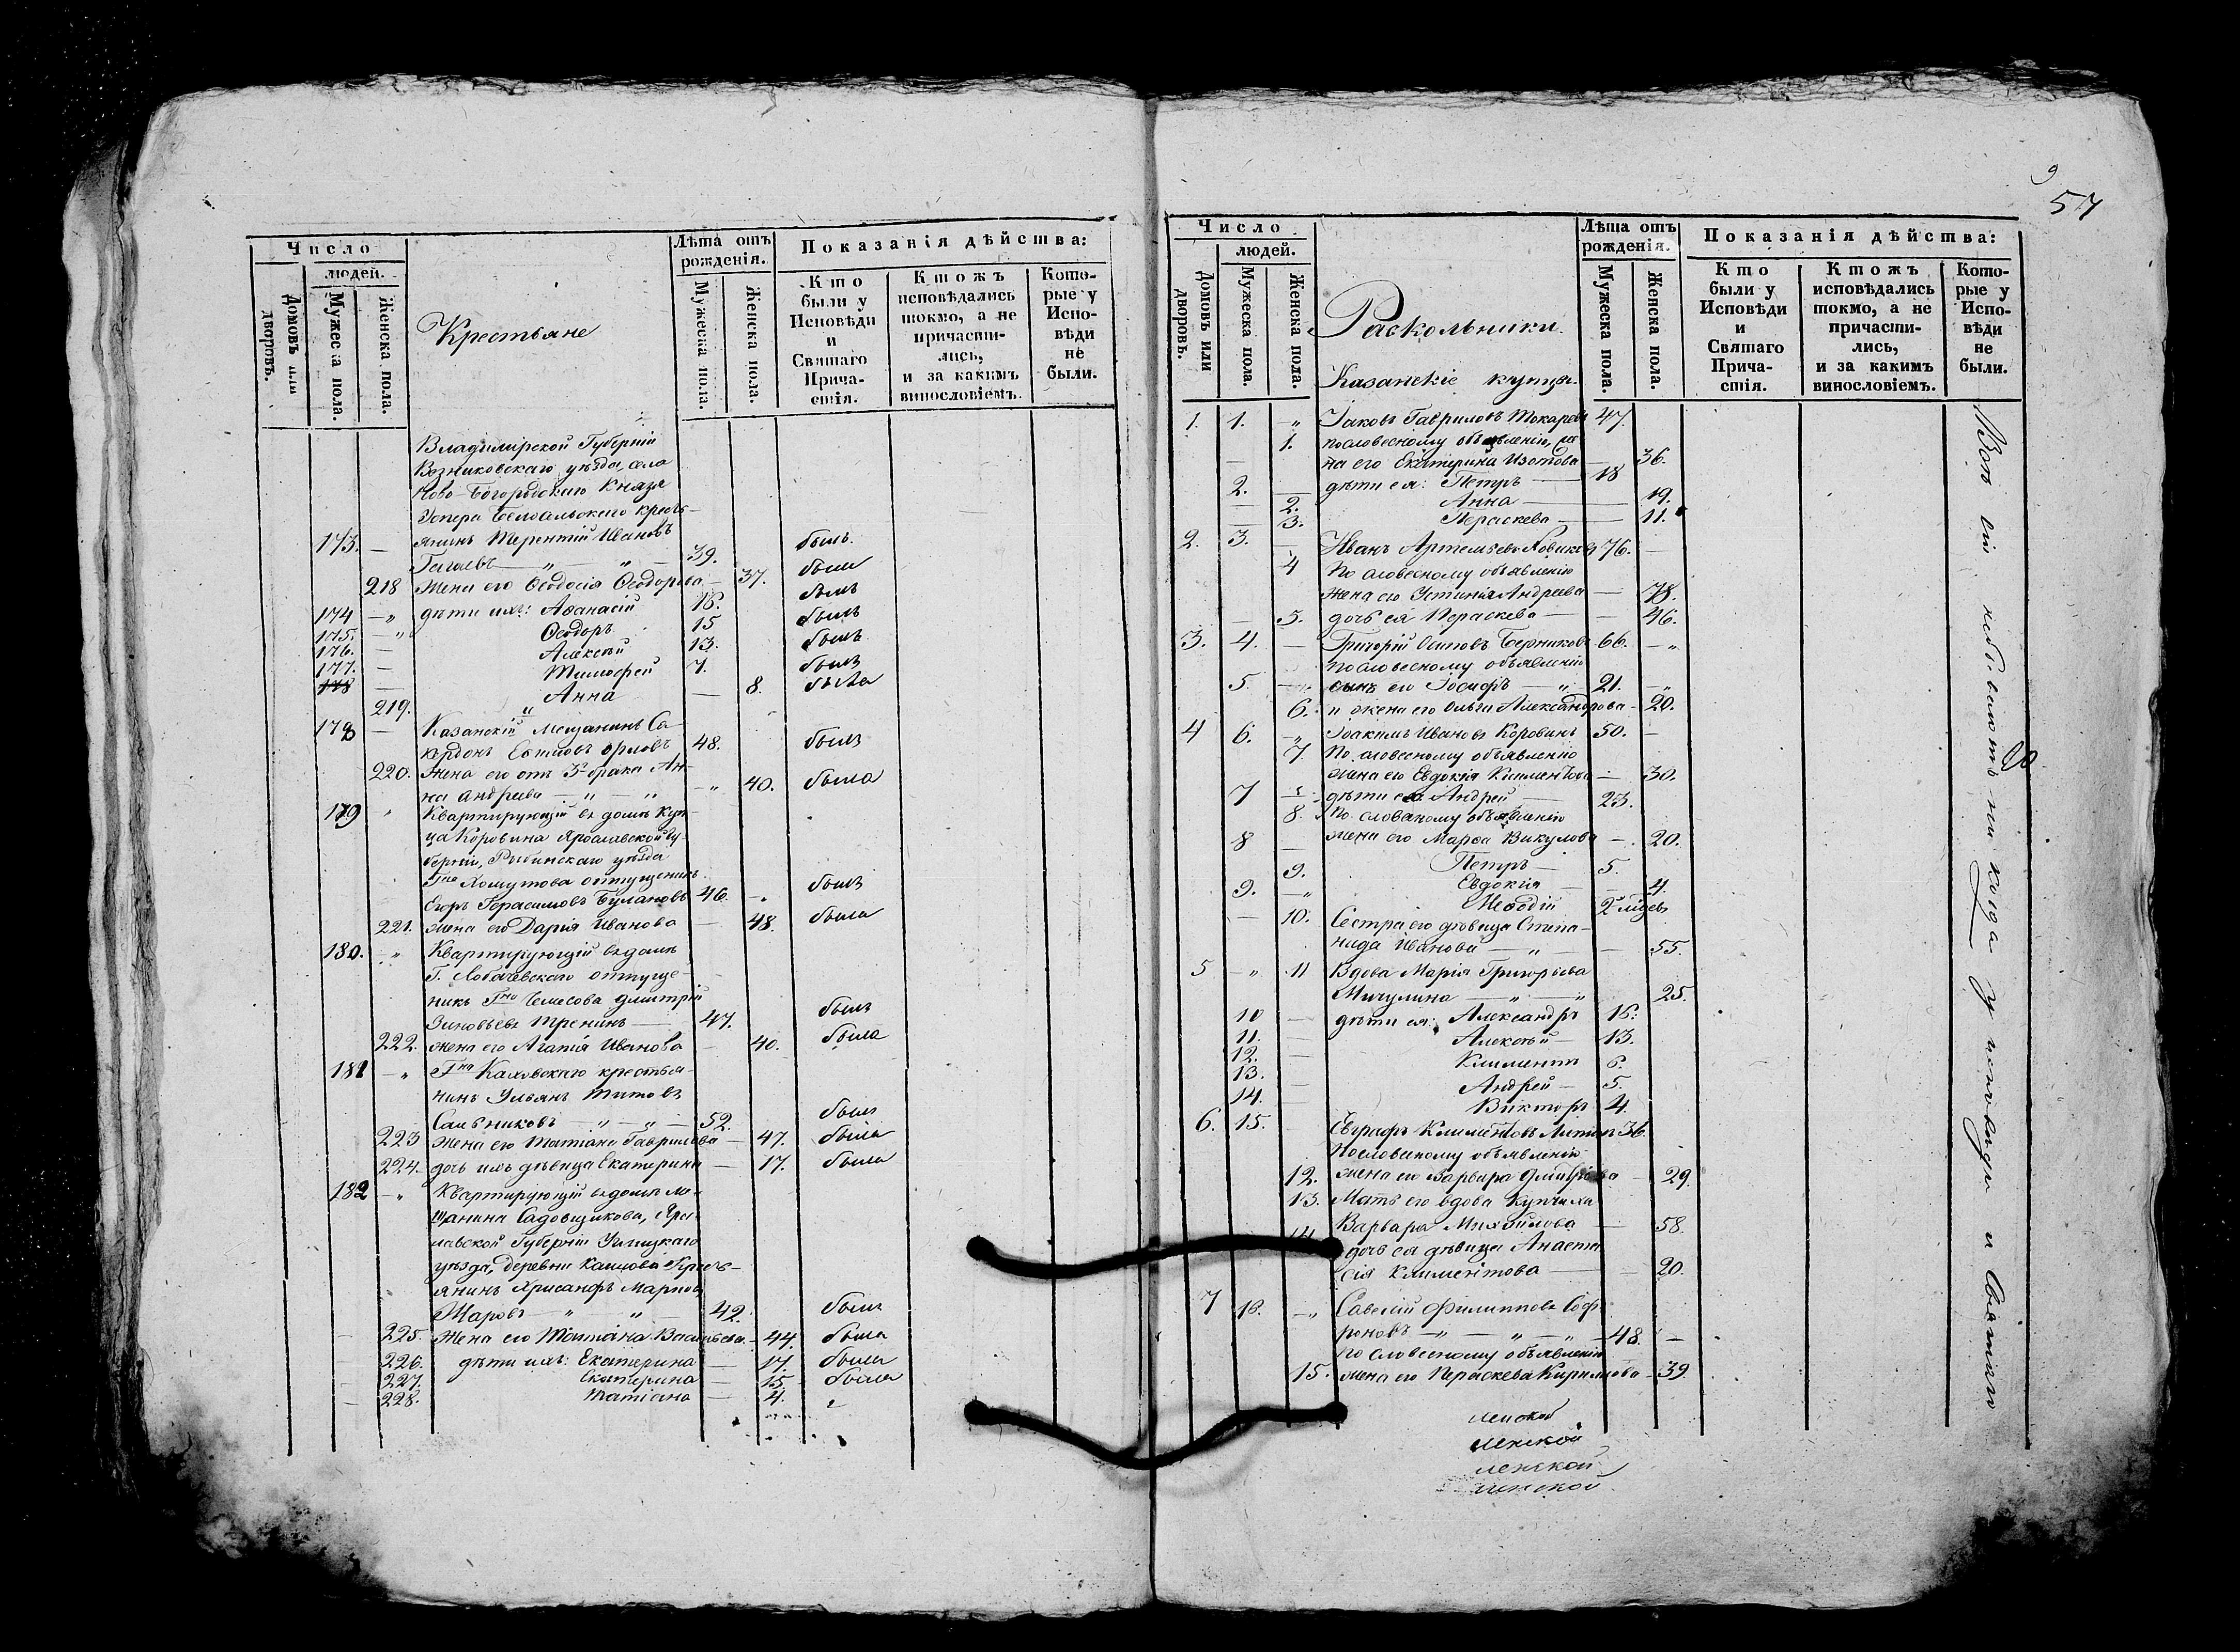 Число
людей.
Домовъ или дворовъ.
Мужеска пола.
Женска пола.
Крестьяне
Лѣта отъ рожденія.
Мужеска пола.
Женска пола.
Показанія дѣйства:
Кто были у Исповѣди и Святаго Прича-стія.
Ктожъ исповѣдались токмо, а не причасти-лись, и за какимъ винословіемъ.
Кото-рые у Испо-вѣди не были.
Владимірской Губерніи
уѣзда, села
Ново- Князя
Эспера Белосельскаго кресть-
173. — янинъ Терентій Ивановъ былъ
— „ — „ — 39.
218 Жена его Ѳеодосія Ѳеодорова — 37. была
174 — „ дѣти ихъ: Аѳанасій 16. былъ
175. — „ Ѳеодоръ 15 былъ
176. — Алексѣй 13. былъ
177. — Тимоѳей 7. былъ
178 — Анна — 8. была
219. „
178 — Казанскій Мещанинъ Са-
Орловъ 48. былъ
220. Жена его отъ 3го брака Ан-
на Андреева — „ — „ — „ 40. была
179 „ Квартирующій въ домѣ куп-
ца Коровина Ярославской Гу-
берніи, Рыбинскаго уѣзда
Гна Хомутова отпущеникъ
Егоръ Герасимовъ Булановъ 46. — „ былъ
221. жена его Дарія Иванова — 48. была
180. — „ Квартирующій въ домѣ
Г. Лобачевскаго отпуще-
никъ Гна Чемесова Дмитрій
Зиновьевъ Тренинъ — 47. былъ
222. жена его Агапія Иванова — 40. была
181 — „ Гна Каховскаго крестья-
нинъ Ульянъ Титовъ
Сальниковъ — „ — „ — 52. былъ
223 Жена его Татіана Гаврилова — 47. была
224. дочь ихъ дѣвица Екатерина — 17. была
182 — „ Квартирующій въ домѣ ме-
щанина Садовщикова, Яро-
славской Губерніи Углицкаго
уѣзда, деревни Кресть-
янинъ Хрисанфъ Марковъ
Шаровъ — „ „ — 42. былъ
225. Жена его Татіана Васильева — 44. была
226. дѣти ихъ: Екатерина — 17. была
227. Екатерина — 15 была
228. Татіана — 4. „
57
Число
людей.
Домовъ или дворовъ.
Мужеска пола.
Женска пола.
Раскольники.
Казанскіе купцы.
Лѣта отъ рожденія.
Мужеска пола.
Женска пола.
Показанія дѣйства:
Кто были у Исповѣди и Святаго Прича-стія.
Ктожъ исповѣдались токмо, а не причасти-лись, и за какимъ винословіемъ.
Кото-рые у Испо-вѣди не были.
1. 1. „ Іаковъ Гавриловъ Токаревъ 47.
1. по словесному объявленію, же-
— на его Екатерина Изотова — 36.
2. — дѣти ея: Петръ — 18
— 2. Анна — 19.
— 3. Параскева — — 11.
2. 3. — Иванъ Артемьевъ Новиковъ 76. —
4 По словесному объявленію
жена его Устинія Андреева — 78.
— 5. дочь ея Параскева — — 46.
3. 4. — Григорій Осиповъ Берниковъ 66. — „
по словесному объявленію
5. — „ сынъ его Іосифъ — „ 21. — „
6. и жена его Ольга Александрова — 20.
4 6. — „ Іоакимъ Ивановъ Коровинъ 50. —
7. По словесному объявленію
жена его Евдокія — 30.
7 дѣти его Андрей — 23.
8. По словесному объявленію
8 — жена его Марѳа Викулова — 20.
9. Петръ — 5.
9. — „ Евдокія — — 4.
Меѳодій 2
— 10. Сестра его дѣвица Степа-
нида Иванова — „ — 55.
5 — „ 11 Вдова Марія Григорьева
Мичулина — „ — „ 25.
10 — дѣти ея: Александръ 16.
11. — Алексѣй — 13.
12. — Климентъ 6.
13. — Андрей — 5.
14. — Викторъ 4.
6. 15. Евграфъ Климентовъ 36.
По словесному объявленію
12. жена его Варвара Дмитріева — 29.
13. Мать его вдова купчиха
Варвара Михайлова — 58.
14. дочь ея дѣвица Анаста-
сія Климентова — — 20.
7 16. — „ Савелій Филипповъ Соф-
роновъ — „ — „ — „ — 48. —
по словесному объявленію
15. жена его Параскева Кирилова — 39.
Всѣ сіи небываютъ ни когда у исповѣди и Святаго